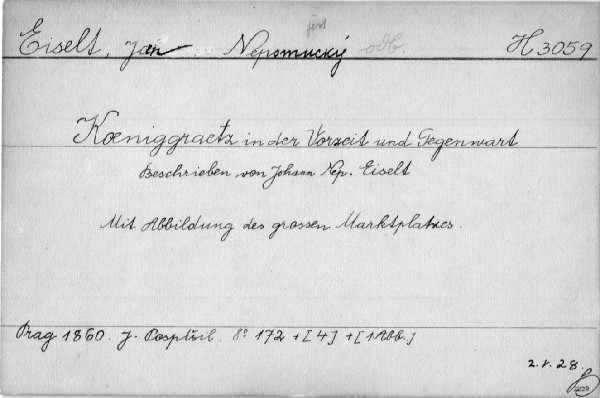 Eiselt, Jan Nepomucký odb. H 3059
Kœniggraetz in der Vorzeit und Gegenwart
Beschrieben von Johann Nep. Eiselt
Mit Abbildung des grossen Marktplatzes.
Prag 1860. J. Pospíšil. 8° 172 + [4] + [1 Abb.]
2. V. 28.